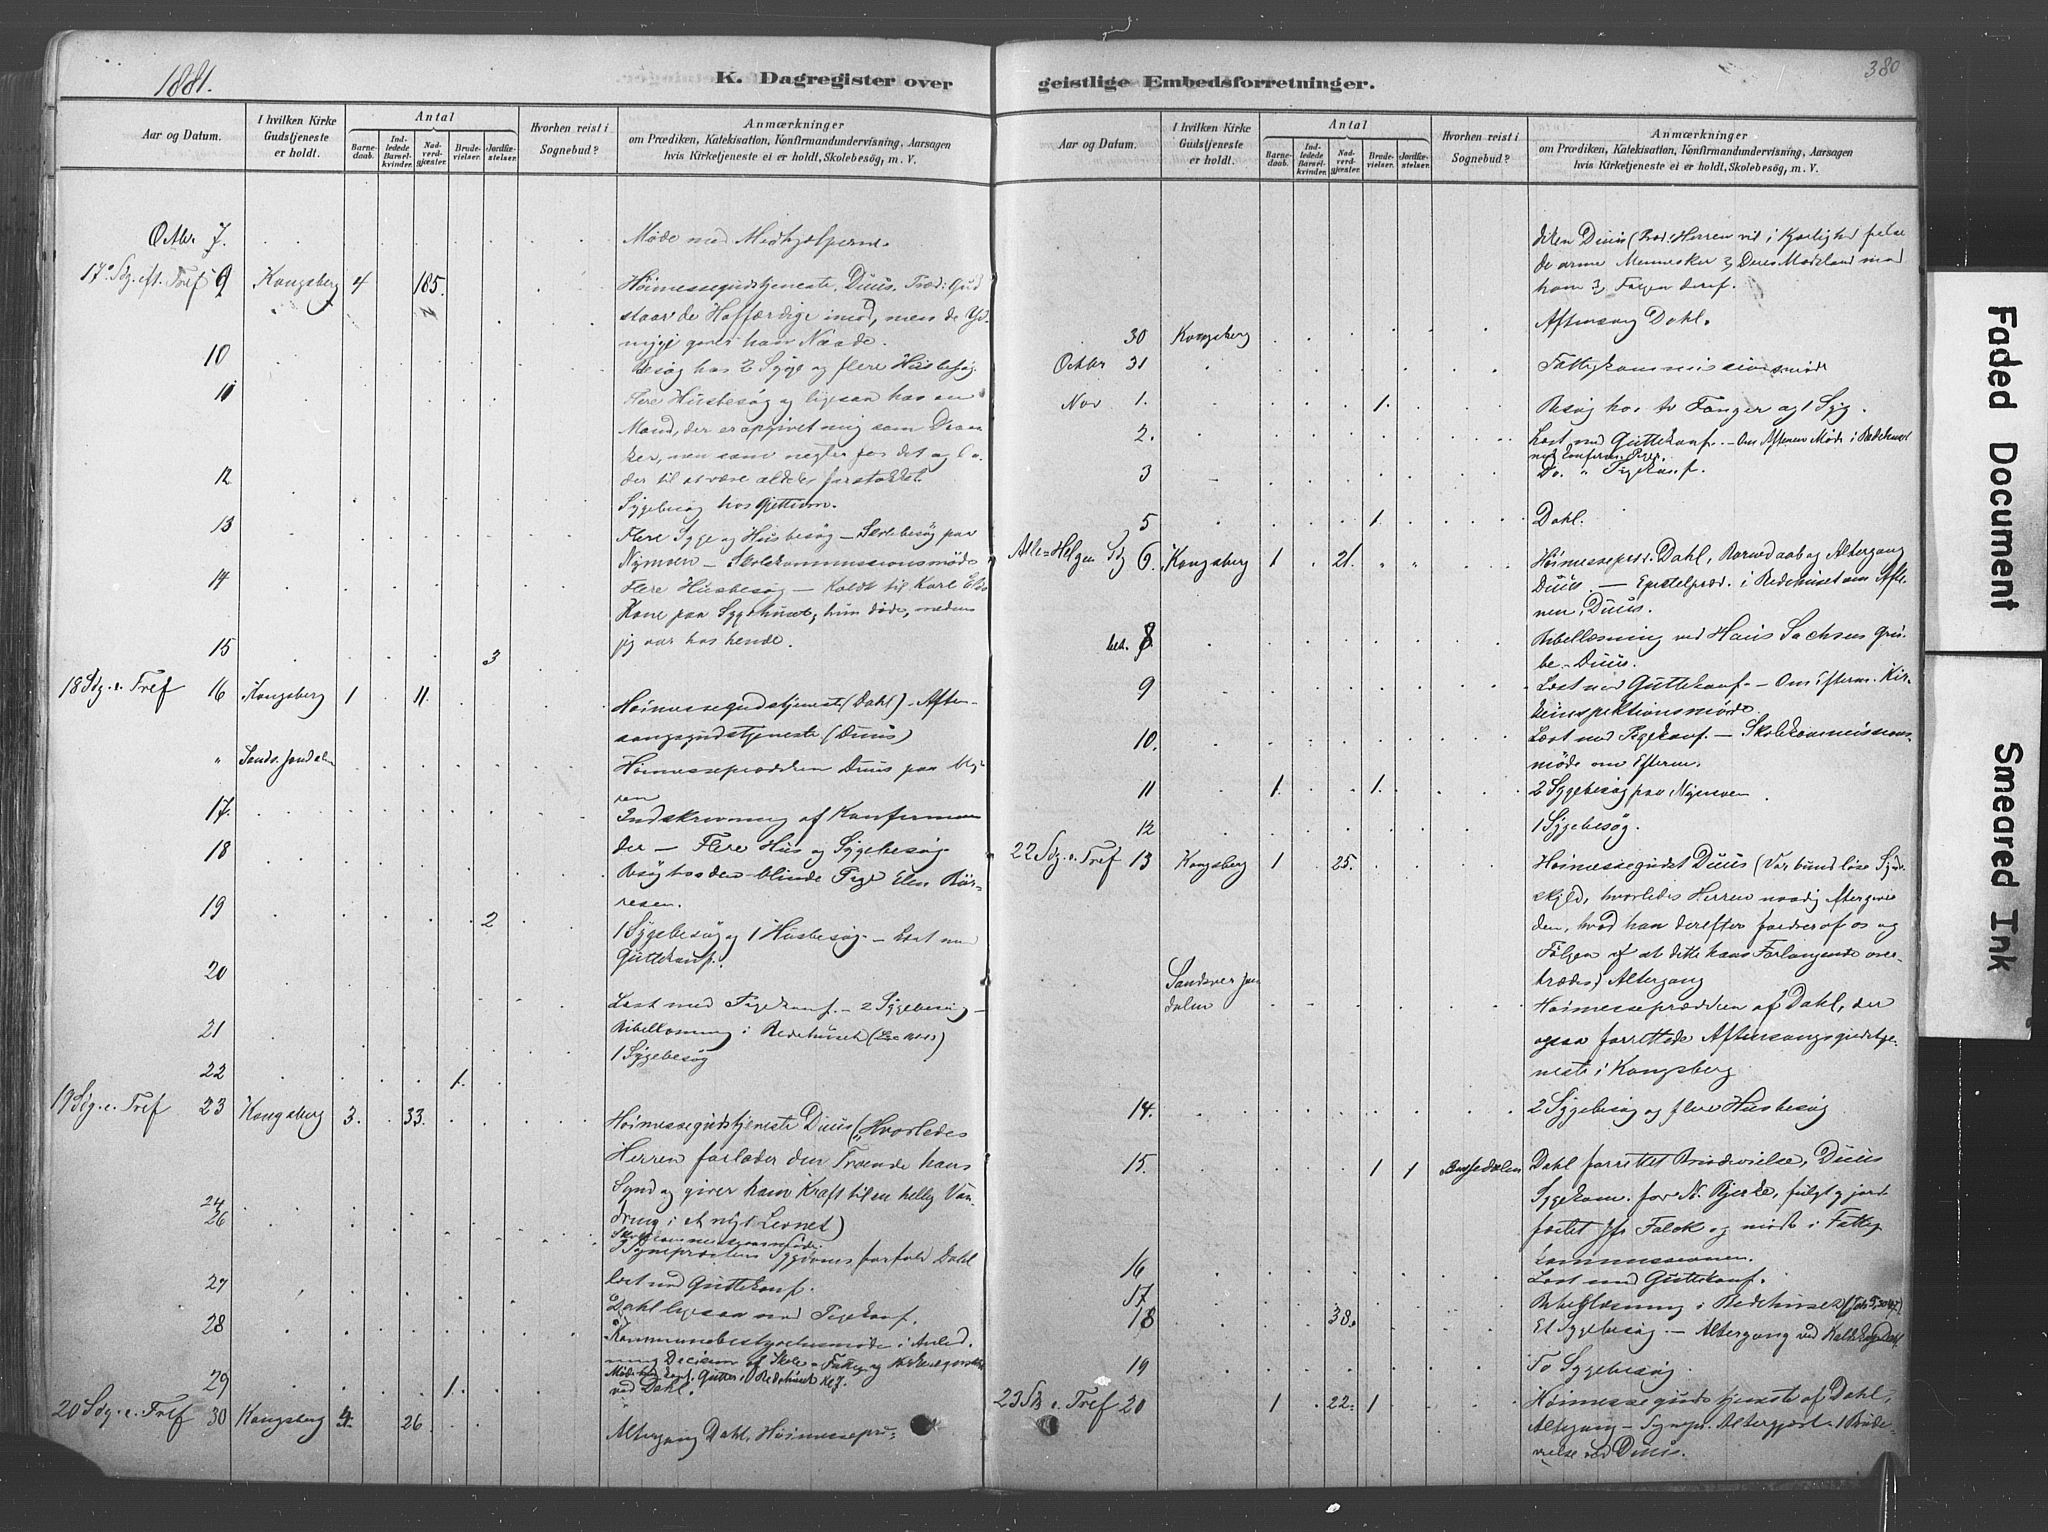 1881.
K. Dagregister over
Aar og Datum.
I hvilken Kirke Gudstjeneste er holdt.
Antal
Barne-daab.
Ind-ledede Barsel-kvinder.
Nad-verd-gjæster.
Brude-vielser.
Jordfæ-stelser.
Hvorhen reist i Sognebud?
Anmærkninger
om Prædiken, Katekisation, Konfirmandundervisning, Aarsagen
hvis Kirketjeneste ei er holdt, Skolebesög, m. V.
Octbr. 7. Møde med Medhjælperne.
17de Sdg. eft. Tref 9 Kongsberg 4 185. Høimessegudstjeneste, Duus. Præd: Gud
staar de Hoffærdige imod, men de Yd-
myge giver han Naade.
10 Besøg hos 2 Syge og flere Husbesøg.
11 Flere Husbesøg og ligesaa hos en
Mand, der er opgivet mig som Dran-
ker, men som negter for det og
12 der til at være aldeles forstokket
Sygebesøg hos
13 Flere Syge og Husbesøg – Skolebesøg paa
Nymoen – Skolekommissionsmøde
14 Flere Husbesøg – Kaldt til Karl
Kone paa Sygehuset, hun døde, medens
15 3 jeg var hos hende.
18 Sdg. e. Tref 16 Kongsberg 1 11. Høimessegudstjeneste (Dahl) – Aften-
sangsgudstjeneste (Duus)
" Sandsv. Jondalen Høimesseprædiken Duus paa
17. Indskrivning af Konfirman
18 der – Flere Hus og Sygebesøg
Besøg hos den blinde Pige Elen Bör-
resen.
19 2 1 Sygebesøg og 1 Husbesøg – Læst med
Guttekonf.
20
Læst med Pigekonf. – 2 Sygebesøg –
21 Bibellæsning i Bedehuset
1 Sygebesøg
22 1.
19 Sdg. e. Tref 23 Kongsberg 3. 33. Høimessegudstjeneste Duus ("Hvorledes
Herren forlader den Troende hans
Synd og giver ham Kraft til en hellig Van
24 dring i et nyt Levnet)
26 Skolekommissionsmøde.
Sogneprestens Sygdomsforfald Dahl
27 læst med Guttekonf.
Dahl ligesaa med Pigekonf.
28 Kommunebestyrelsesmøde i Anled-
ning Decision af Skole- Fattig og Kirkeregnskab
29 1. Møde konf. Gutter i Bedehuset Kl 7.
ved Dahl.
20 Sdg. e. Tref 30 Kongsberg 4. 26. Altergang Dahl. Høimessepræ-
geistlige Embedsforretninger.
380
Aar og Datum.
I hvilken Kirke Gudstjeneste er holdt.
Antal
Barne-daab.
Ind-ledede Barsel-kvinder.
Nad-verd-gjæster.
Brude-vielser.
Jordfæ-stelser.
Hvorhen reist i Sognebud?
Anmærkninger
om Prædiken, Katekisation, Konfirmandundervisning, Aarsagen
hvis Kirketjeneste ei er holdt, Skolebesög, m. V.
diken Duus (Præd: Herren vil i Kjærlighed frelse
de arme Mennesker og Deres Modstand mod
ham og Følgen deraf.
30 Kongsberg Aftensang Dahl.
Octbr 31 " Fattigkommissionsmøde
Nov 1. 1. Besøg hos to Fanger og 1 Syg.
2. Læst med Guttekonf. – Om Aftenen Møde i Bedehuset
med Confirm. Piger.
3 Do. " Pigekonf.
5 1. Dahl.
Alle-Helgen Sdg 6. Kongsberg 1 21. Høimessepræd. Dahl, Barnedaab og Altergang
Duus. – Epistelpræd. i Bedehuset om Afte-
nen, Duus.
8 Bibellæsning ved Hans Sachsens Gru-
be – Duus.
9 Læst med Guttekonf. – Om Efterm. Kir-
keinspektionsmøde
10. Læst med Pigekonf. – Skolekommissions-
møde om Efterm.
11 1. 1. 2 Sygebesøg paa Nymoen
12 1 Sygebesøg.
22 Sdg. e. Tref 13 Kongsberg 1 25. Høimessegudst Duus (Vor bundløse Synde
skyld, hvorledes Herren naadig eftergiver
den, hvad han derefter fordrer af os og
Følgen af at dette hans Forlangende over-
trædes) Altergang
Sandsver Jon
dalen Høimesseprædiken af Dahl, der
ogsaa forrettede Aftensangsgudstje-
neste i Kongsberg
14. 2 Sygebesøg og flere Husbesøg
15. 1 1 Dahl forrettet Brudevielse, Duus
Sygekom. for N. Bjerke, fulgt og jord
fæstet Jfr Falck og møde i Fattig
kommissionen.
16 Læst med Guttekonf.
17 Bibellæsning i Bedehuset
18 38. Et Sygebesøg – Altergang ved
19 To Sygebesøg
23 Sdg e. Tref 20 1 22. 1 Høimessegudstjeneste af Dahl,
Altergang – Sognepr. Altergjest – 1 Brude-
vielse ved Duus.
Faded Document
Smeared Ink